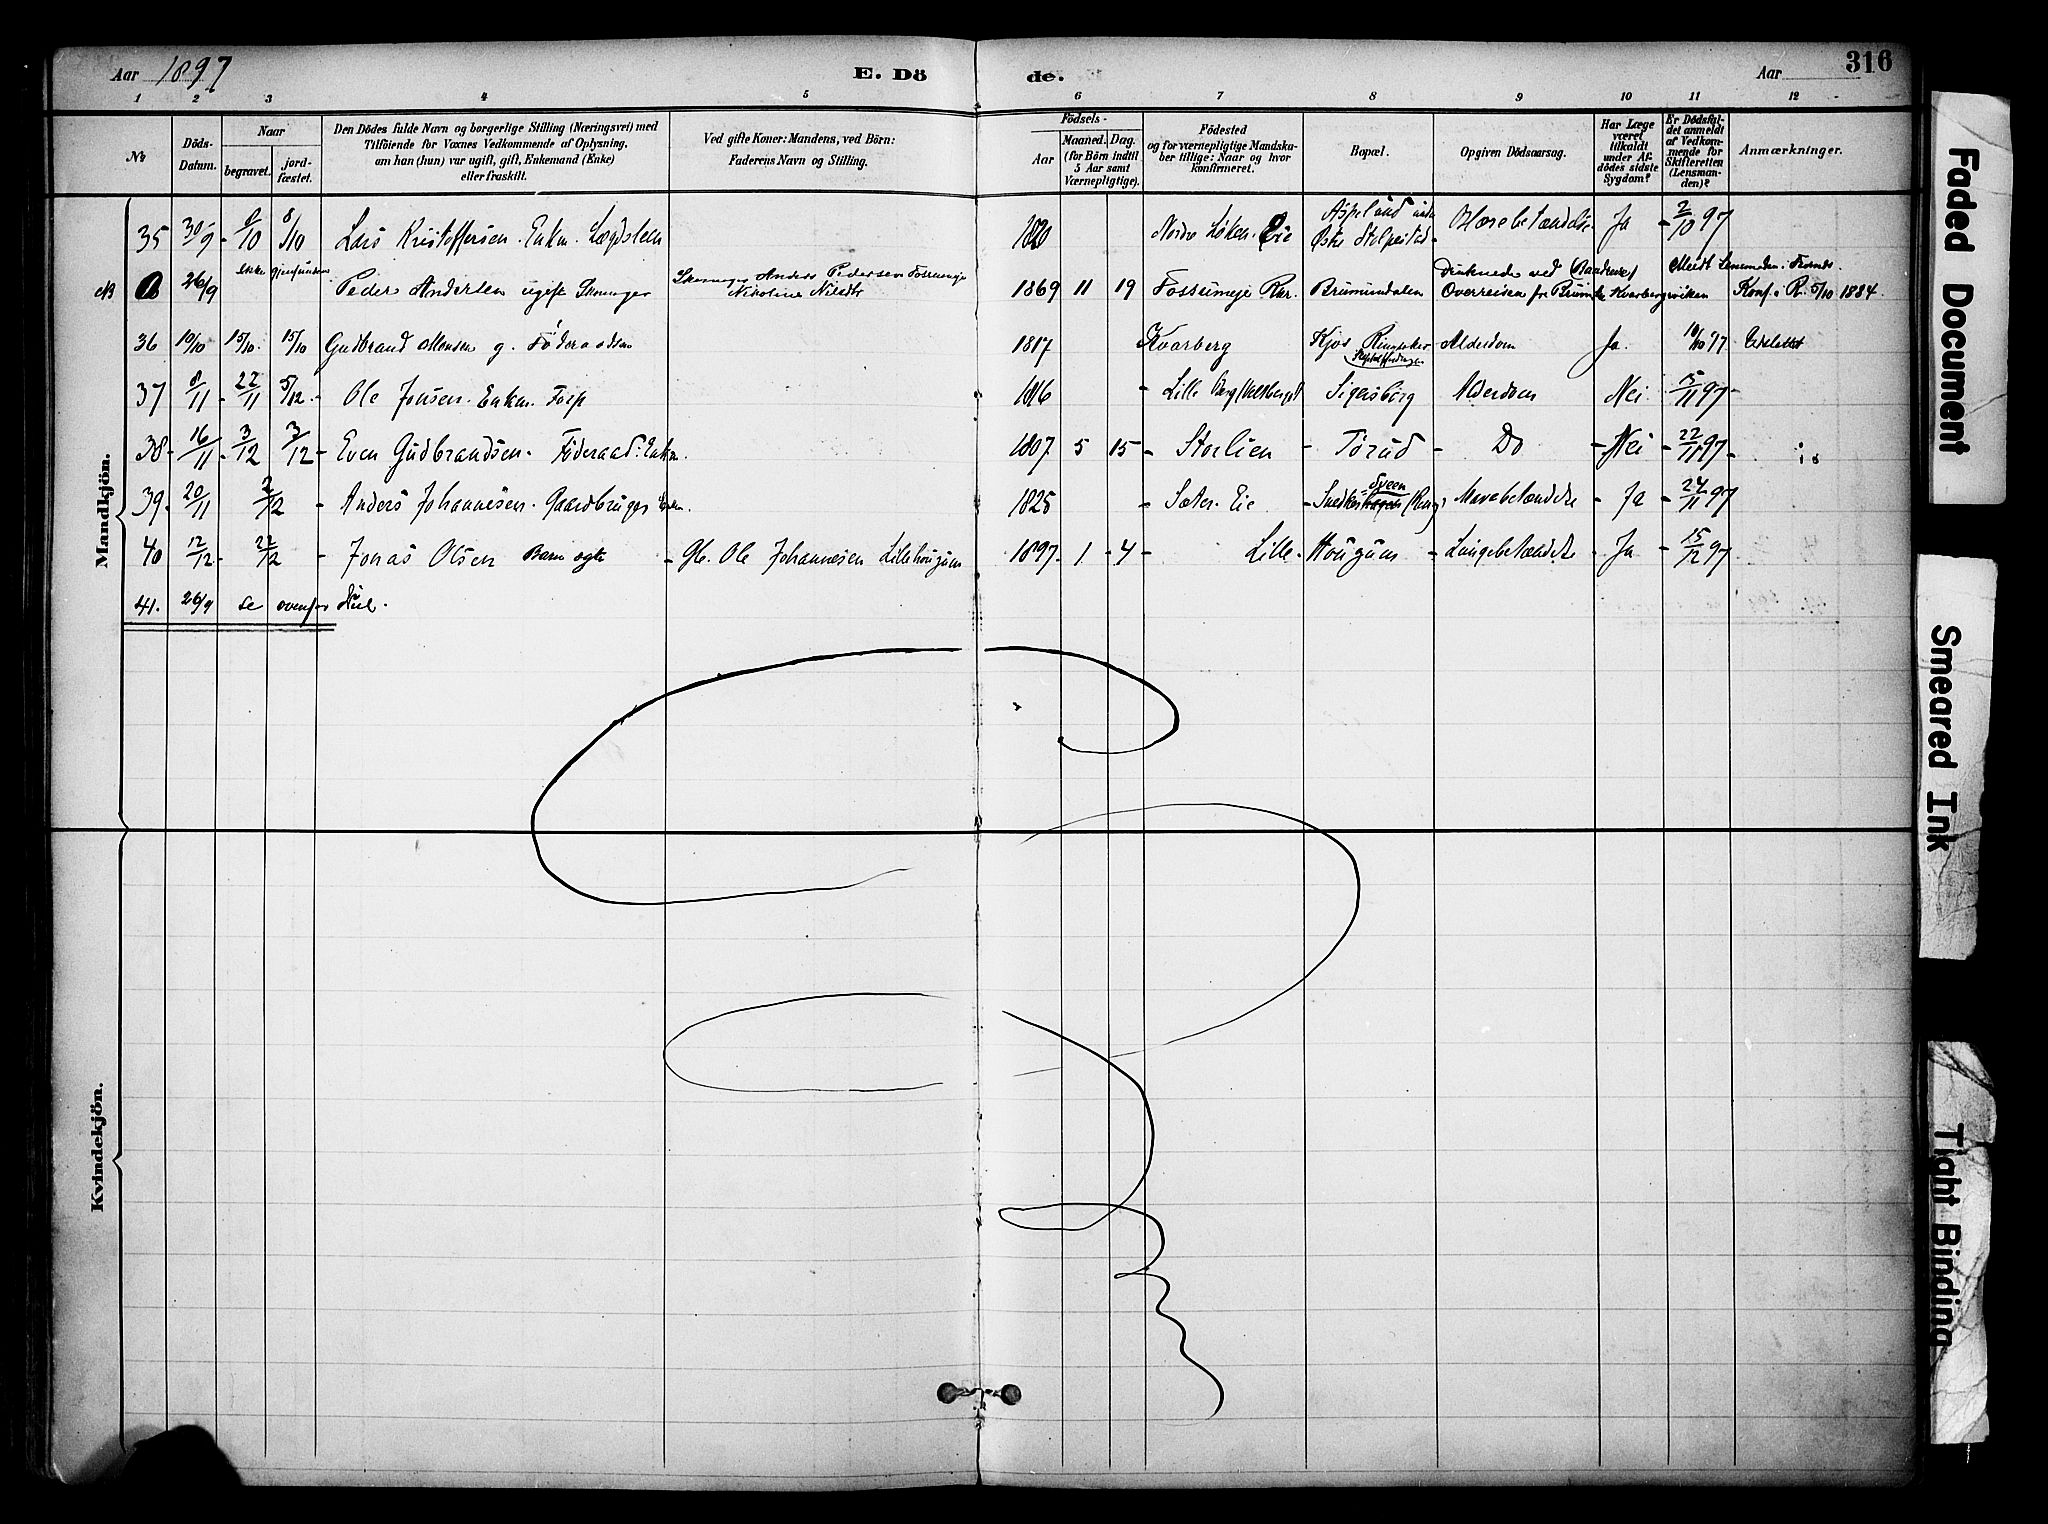 Aar 1897
E. Dö de.
Aar
316
1 2 3 4 5 6 7 8 9 10 11 12
No
Döds-Datum.
Naar
begravet.
jordfæstet.
Den Dödes fulde Navn og borgerlige Stilling (Næringsvei) med
Tilföiende for Voxnes Vedkommende af Oplysning,
om han (hun) var ugift, gift, Enkemand (Enke)
eller fraskilt.
Ved gifte Koner: Mandens, ved Börn:
Faderens Navn og Stilling.
Födsels-
Aar
Maaned. Dag.
(for Börn indtil
5 Aar samt
Værnepligtige).
Födested
og for værnepligtige Mandska-
ber tillige: Naar og hvor
konfirmeret.
Bopæl.
Opgiven Dödsaarsag.
Har Læge
været
tilkaldt
under Af-
dödes sidste
Sygdom?
Er Dödsfal-
det anmeldt
af Vedkom-
mende for
Skifteretten
(Lensman-
den)?
Anmærkninger.
Mandkjön.
35 30/9 - 8/10 8/10 Lars Kristoffersen. Enkm. Lægdslem 1820 Nordre Løken. Eie Ja - 2/10 97
NB 26/9 ikke gjenfunden Peder Andersen ugift Skomager Skomager Anders Pedersen Fossumeje Nikoline Nilsdtr 1869 11 19 Fossumeje Rur. Brumundalen Druknede ved Overreisen fr Konf. i R. 5/10 1884.
36 10/10 15/10. 15/10 Gudbrand Monsen g. Föderaadsm 1817 Kvarberg Kjos Alderdom Ja. 10/10 97
37 8/11 - 22/11 5/12. - Ole Jonsen. Enkm. 1816 - Lille Berg Sigersborg Alderdom Nei 15/11 97 -
38 - 16/11 - 3/12 3/12 - Even Gudbrandsen - Föderaad. Enkm. 1807 5 15 - Storlien - Torud - Do - Nei - 22/11 97 -
39 - 20/11 2/12 - Anders Johannesen - Gaardbruger Enkm. 1825 - Sæter. Eie - Sveen - Mavebetændelse - Ja - 24/11 97
40 12/12 - 22/12 - Jonas Olsen Barn ægte - Gb. Ole Johannesen Lillehougum 1897 - 1 - 4 - Lille - Hougum - Lungebetændelse - Ja - 15/12 97
41. 26/9 se ovenfor
Kvindekjön.
Faded Document
Smeared Ink
Tight Binding